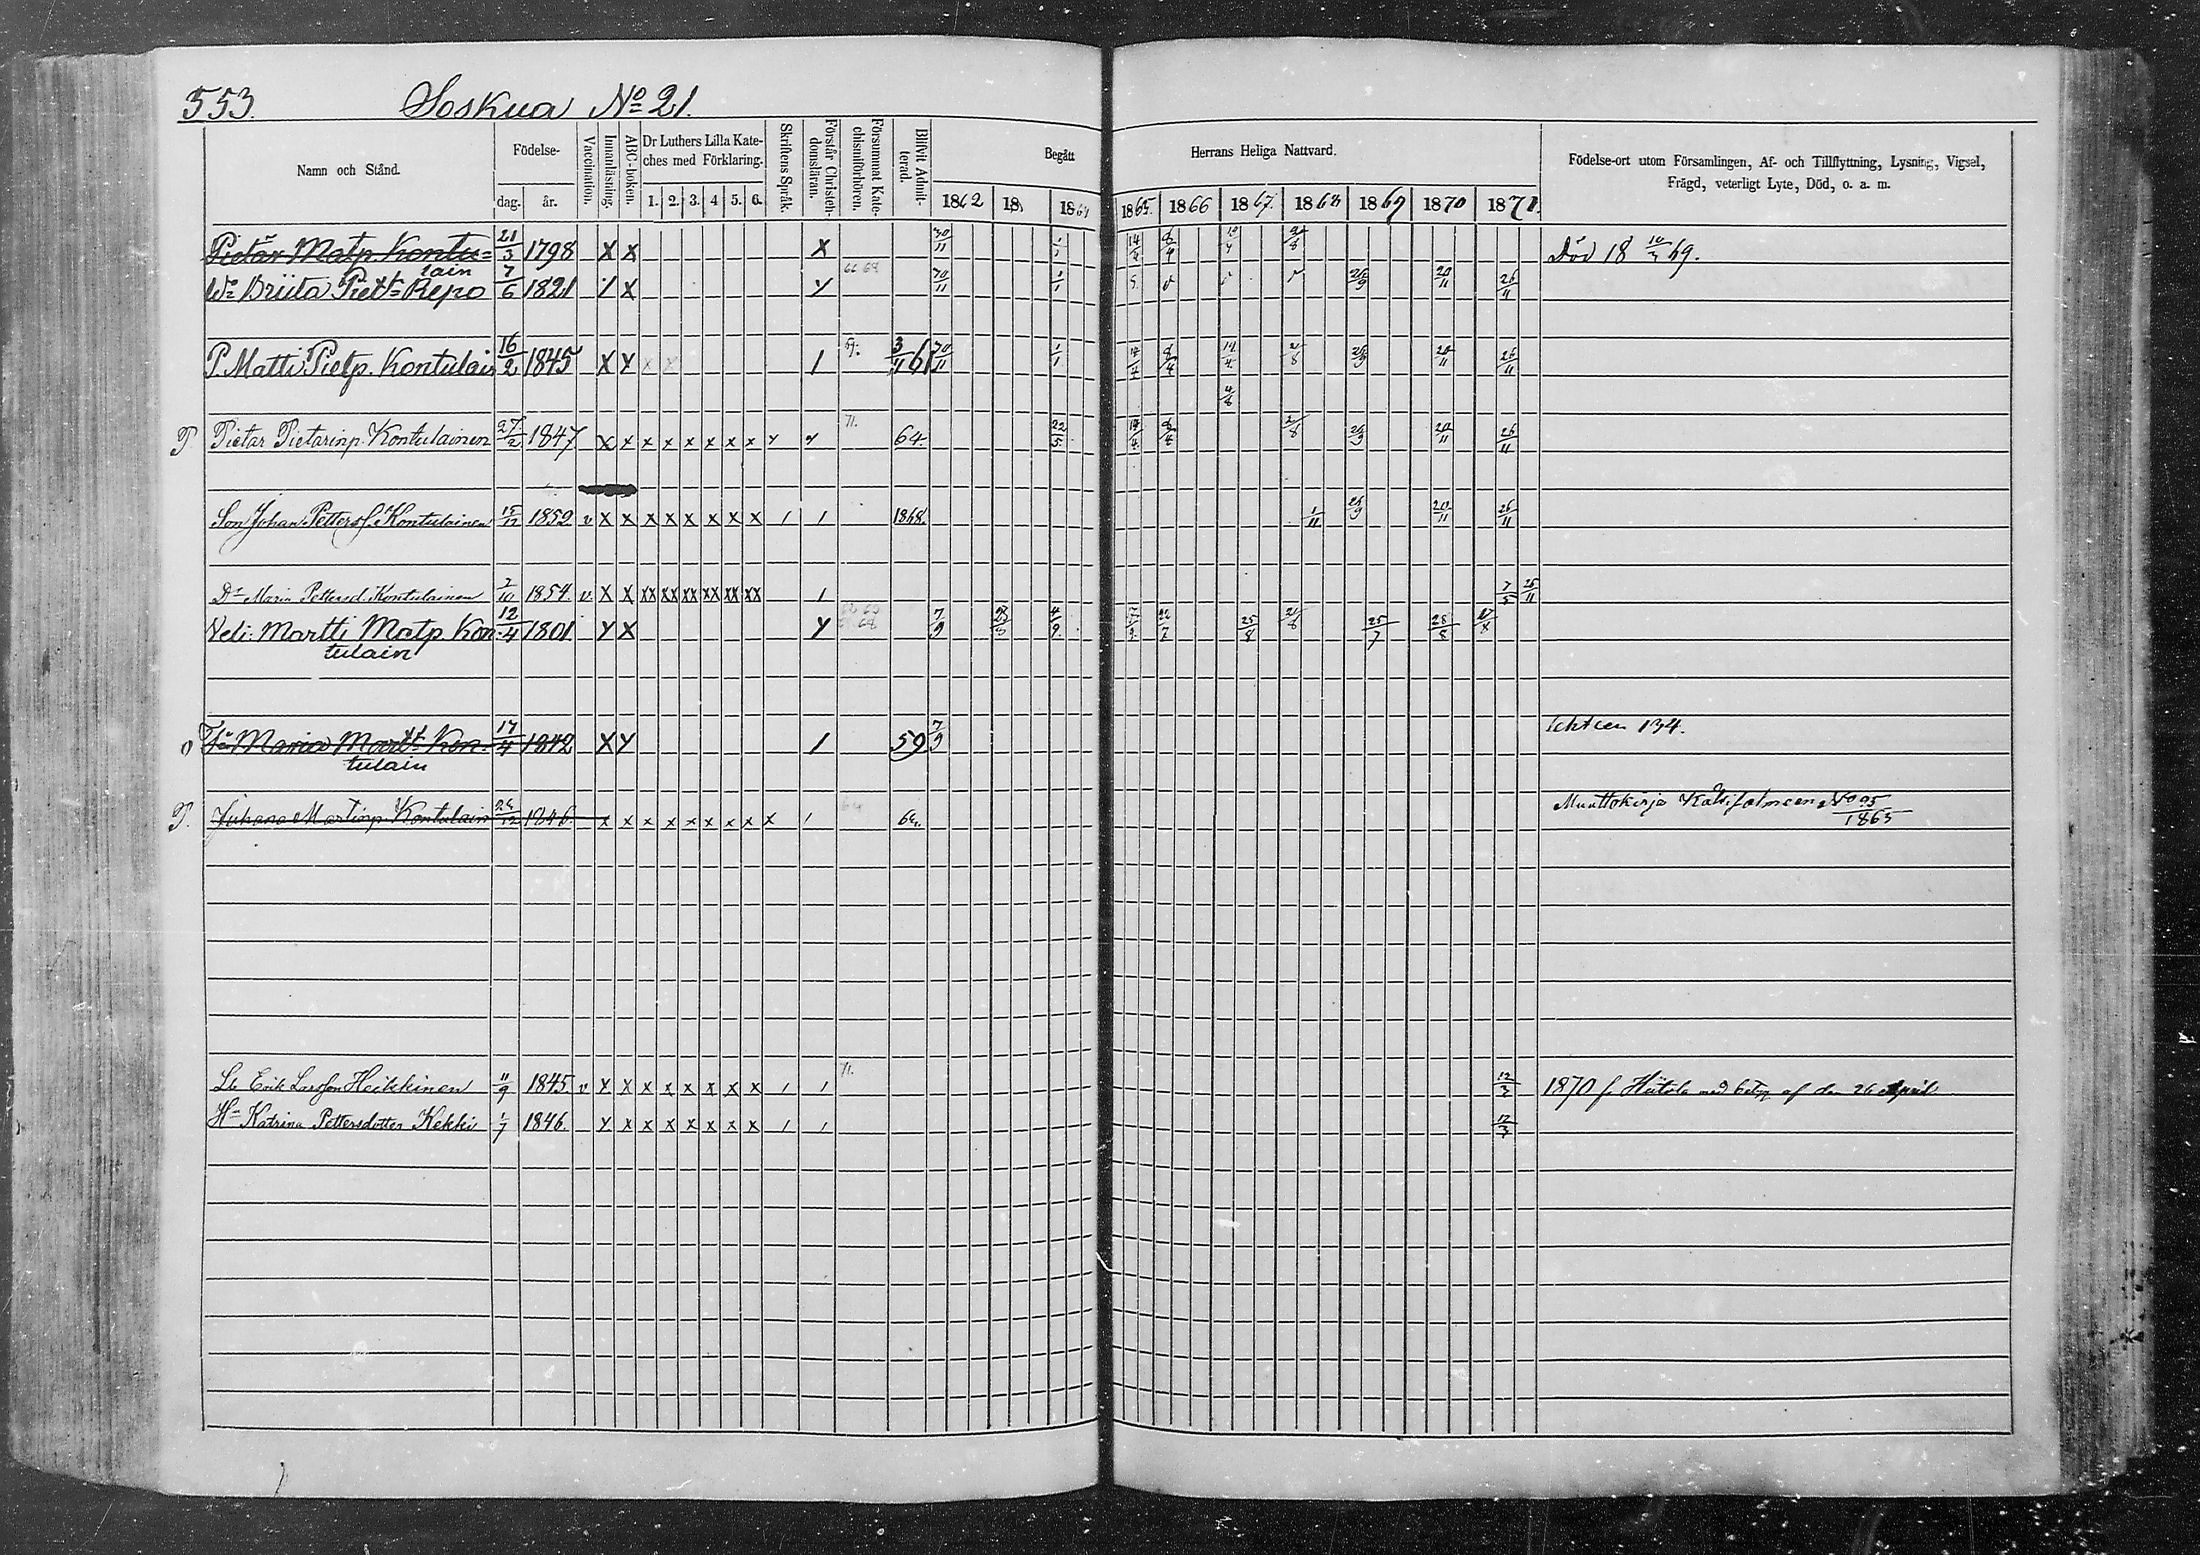 553. Soskua No 21.
Namn och Stånd.
Födelse-
dag. år.
Vaccination.
Innanläsning.
ABC-boken.
Dr Luthers Lilla Kate-
ches med Förklaring.
1. 2. 3. 4 5. 6.
Skriftens Språk.
Förstår Christen-
domsläran.
Försummat Kate-
chismiförhören.
Blifvit Admit-
terad.
Begått Herrans Heliga Nattvard.
1862 18 1864 1865. 1866 1867. 1868 1869 1870 1871.
Födelse-ort utom Församlingen, Af- och Tillflyttning, Lysning, Vigsel,
Frägd, veterligt Lyte, Död, o. a. m.
Pietar Matp Kontu= 21/3 1798 X X X 30/11 1/1 14/4 8/4 2/8 Död 18 10/3 69.
lain
Wo Briita Piett= Repo 7/6 1821 X X 66 68 30/11 1/1 26/9 20/11 26/11
P. Matti Pietp. Kontulain 16/2 1845 X X x x 1 69. 3/4 61 30/11 1/1 14/4 8/4 14/4 2/8 26/9 20/11 26/11
4/8
P. Pietar Pietarinp. Kontulainen 27/2 1847 X x x x x x x x 71. 64. 22/5 14/4 8/4 2/8 26/9 20/11 26/11
Son Johan Petters f. Kontulainen 15/12 1852 v X X X X X X X X 1 1 1868. 1/11 26/9 20/11 26/11
Dr Maria Pettersd. Kontulainen 2/10 1854. v. X X XX XX XX XX XX XX 1 7/5 26/11
Veli: Martti Matp Kon- 12/4 1801 X X 7/9 4/9 7/9 22/7 25/8 2/8 25/7 28/8 17/8
tulain
o Tr Maria Martt Kon- 17/4 1842 X X 1 59 7/9 134.
tulain
P. Juhana Martinp. Kontulain 1846. x x x x x x x x x 1 64 64. Muuttokirja 1865
Lb Erik Larsson Heikkinen 11/9 1845 v X X X X X X X X 1 1 71. 12/3 1870 fr Hiitola med betyg af den 26 April
Hu Katrina Pettersdotter Kekki 1/7 1846. X X X X X X X X 1 1 12/3